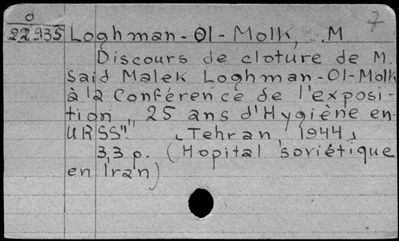 7
0
22935 Loghman-Ol-Molk, .M
Discours de cloture de M.
Said Malek Loghman-Ol-Molk
à la Conférence de l'exposi-
tion „25 ans d'Hygiène en
URSS". [Tehran, 1944]
3,3 p. (Hopital soviétique
en Iran)